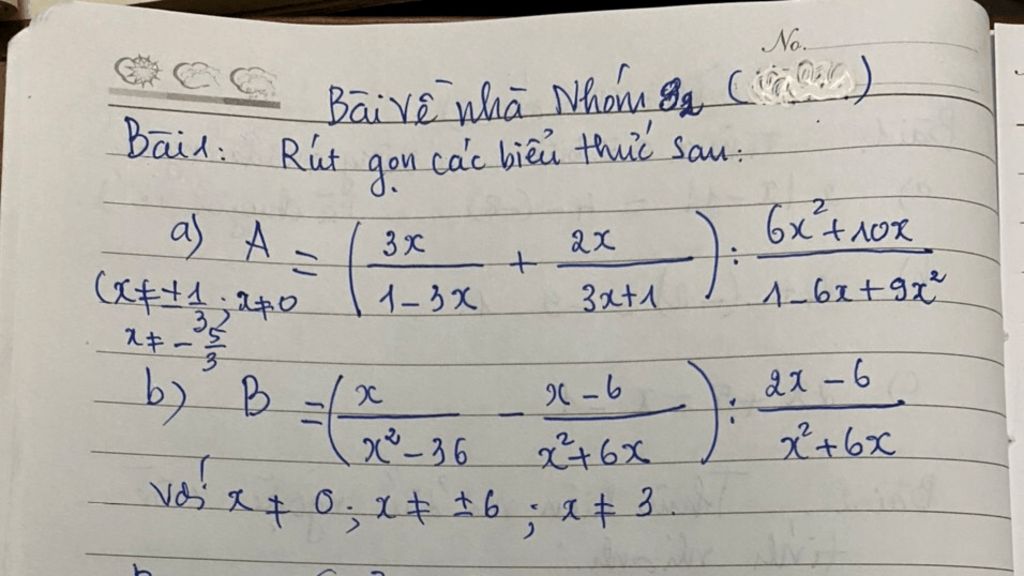 No.
Bài Về nhà Nhóm 92 (
Bài 1: Rút gọn các biểu thức sau:
a) A = (3x/(1-3x) + 2x/(3x+1)) : (6x²+10x)/(1-6x+9x²)
(x ≠ ±1/3; x ≠ 0
x ≠ -5/3
b) B = (x/(x²-36) - (x-6)/(x²+6x)) : (2x-6)/(x²+6x)
với x ≠ 0; x ≠ ±6; x ≠ 3.